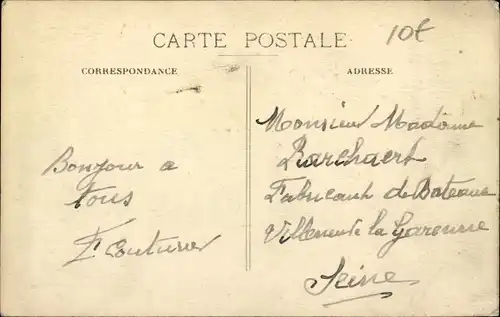 CARTE POSTALE
10€
CORRESPONDANCE
ADRESSE
Bonjour a
tous
Couturier
Monsieur Madame
Fabricant de Bateaux
Villeneuve la Garenne
Seine